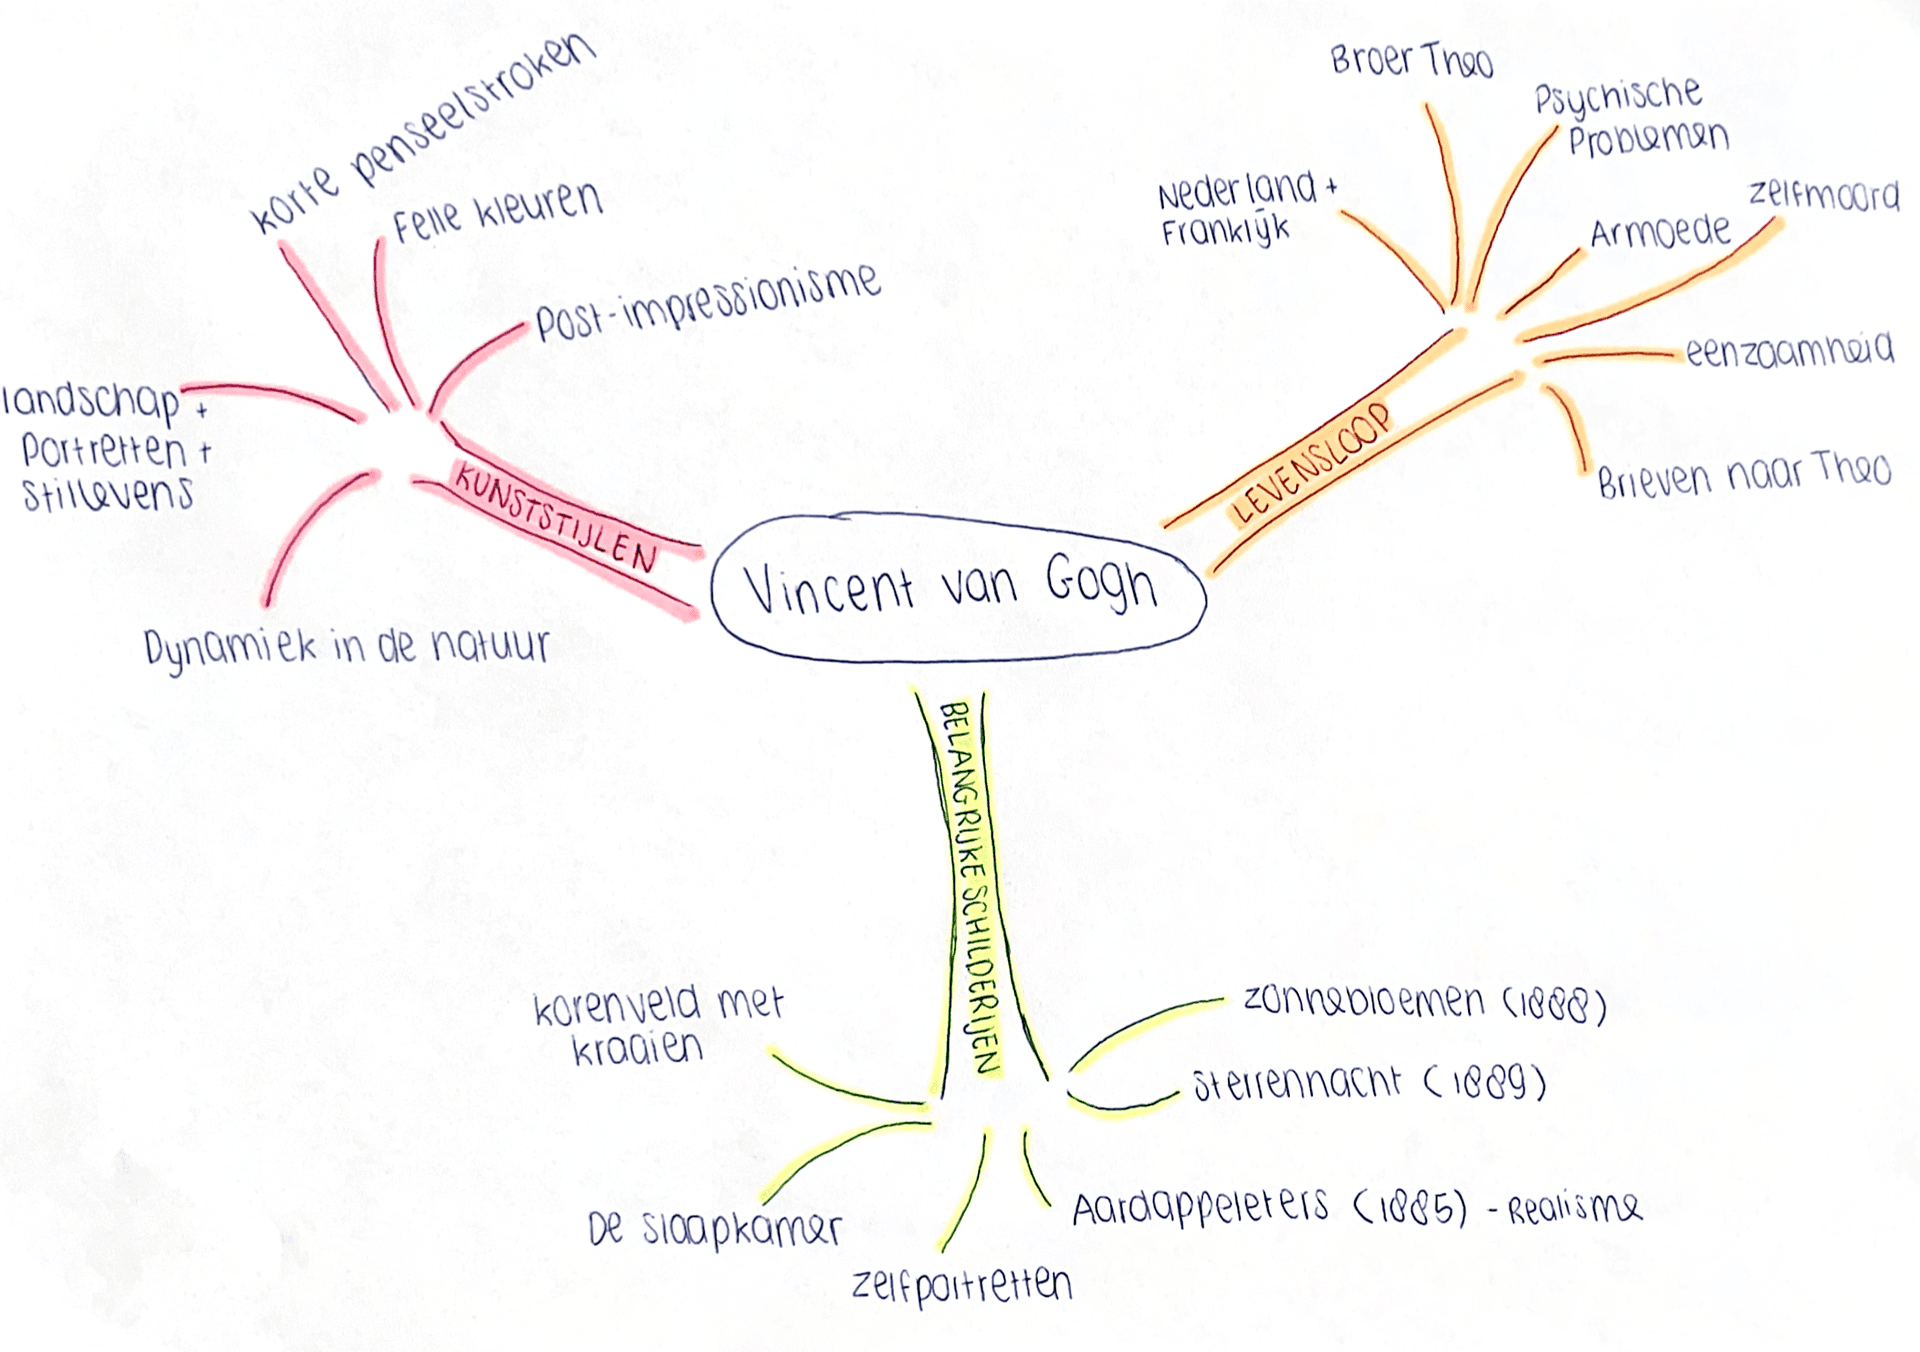 Vincent van Gogh
KUNSTSTIJLEN
korte penseelstroken
Felle kleuren
Post-impressionisme
landschap +
Portretten +
Stillevens
Dynamiek in de natuur
LEVENSLOOP
Nederland +
Franklijk
Broer Theo
Psychische
Problemen
Armoede
zelfmoord
eenzaamheid
Brieven naar Theo
BELANGRIJKE SCHILDERIJEN
zonnebloemen (1888)
Sterrennacht (1889)
Aardappeleters (1885) - Realisme
zelfportretten
De slaapkamer
korenveld met
kraaien